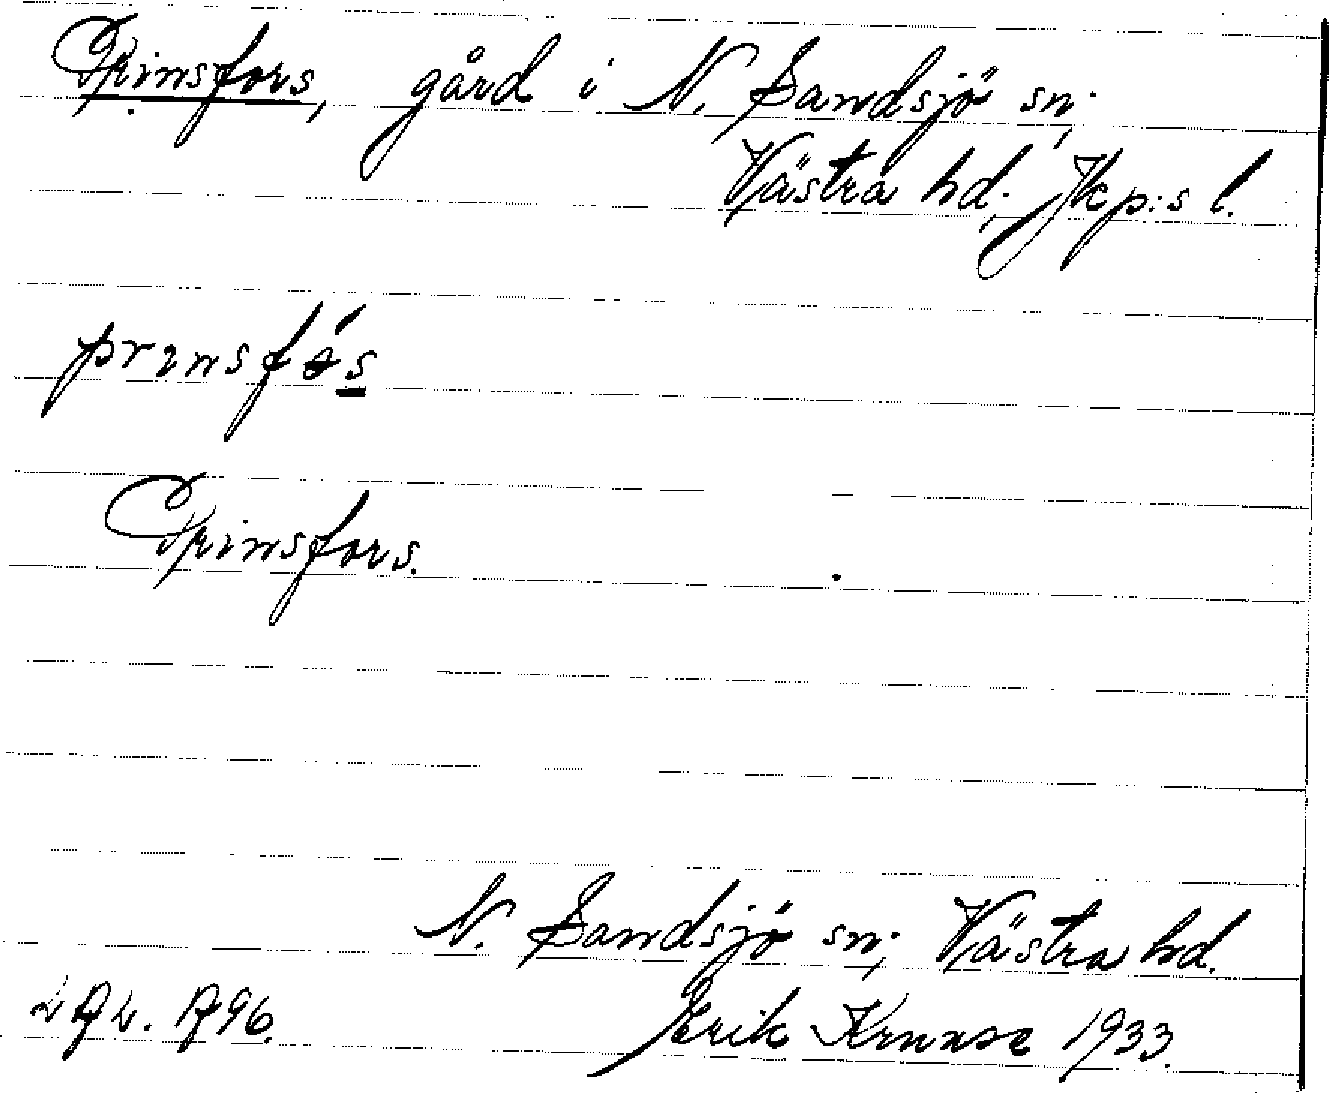 Prinsfors, gård i N. Sandsjö sn,
Västra hd, Jkp:s l.
prinsfós
Prinsfors.
N. Sandsjö sn, Västra hd.
1796. Erik Kruuse 1933.